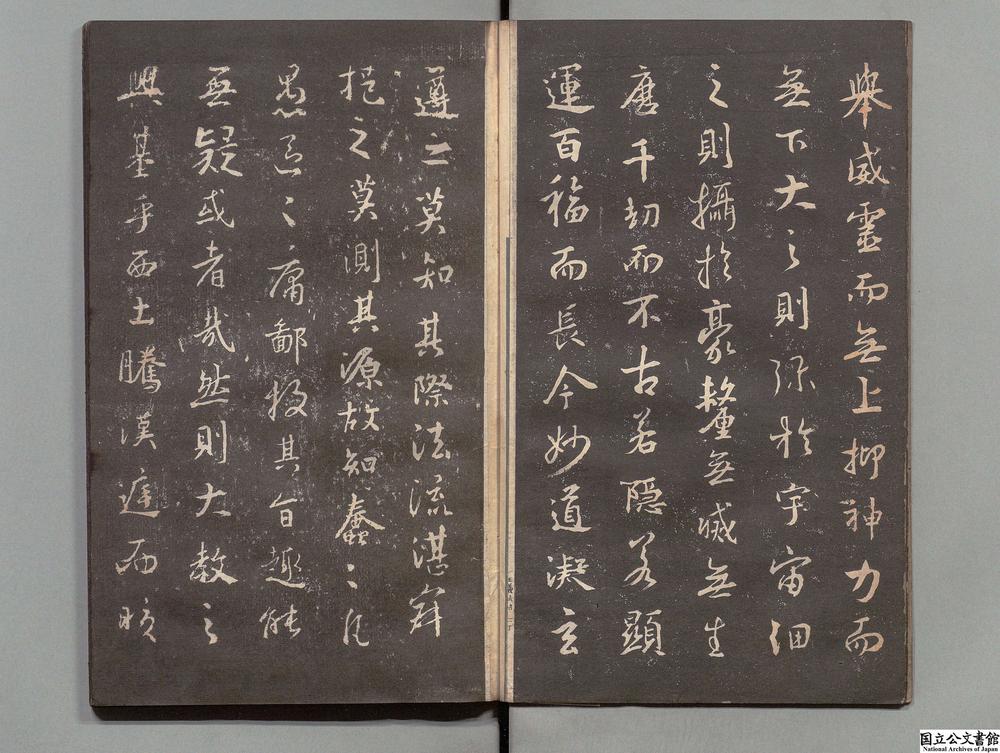 舉威靈而無上抑神力而
無下大之則彌於宇宙細
之則攝於豪釐無滅無生
歷千劫而不古若隱若顯
運百福而長今妙道凝玄
遵之莫知其際法流湛寂
挹之莫測其源故知蠢々凡
愚區々庸鄙投其旨趣能
無疑或者哉然則大教之
興基乎西土騰漢庭而皎
国立公文書館
National Archives of Japan